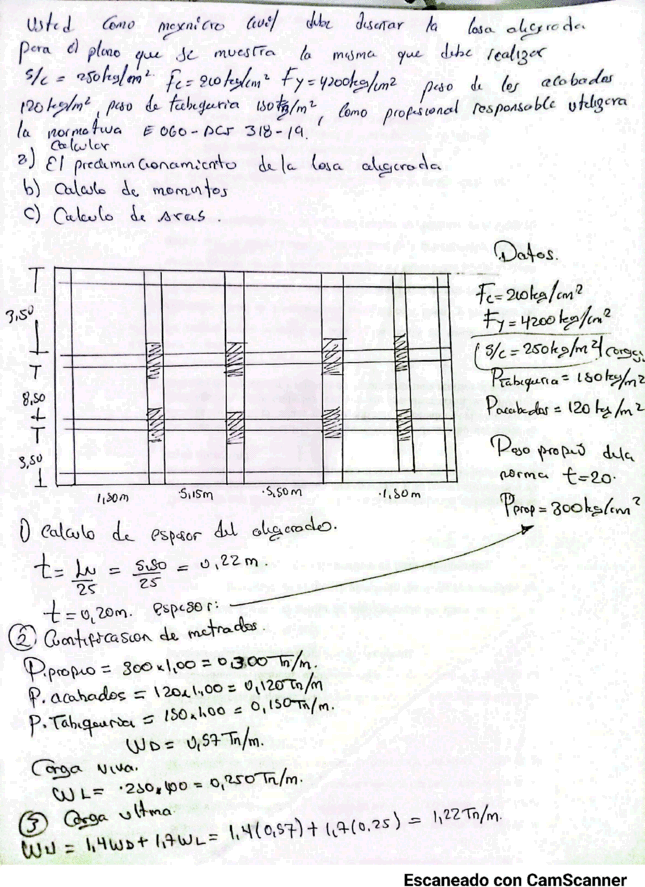 Usted como ingeniero civil debe diseñar la losa aligerada
para el plano que se muestra la misma que debe realizar
S/c = 250kg/m² Fc = 200kg/cm² Fy = 4200kg/cm² peso de los acabados
120kg/m², peso de tabiqueria 150kg/m², como profesional responsable utilizara
la normativa E 060 - ACI 318-19.
Calcular
a) El predimencionamiento de la losa aligerada
b) Calculo de momentos
c) Calculo de areas.
Datos.
Fc = 210kg/cm²
Fy = 4200kg/cm²
S/c = 250kg/m²
Ptabiqueria = 150kg/m²
Pacabados = 120kg/m²
Peso propio dela
norma t=20.
Pprop = 300kg/cm²
3,50
3,50
3,50
1,80m 5,15m 5,50m 1,80m
1) Calculo de espesor del aligerado.
t = Ln/25 = 5.50/25 = 0,22m.
t = 0,20m. Espesor:
② Cuantificasion de metrados.
P.propio = 300 x 1,00 = 0,300 Tn/m.
P. acabados = 120x1,00 = 0,120 Tn/m
P. Tabiqueria = 150x1,00 = 0,150 Tn/m.
WD = 0,57 Tn/m.
Carga viva.
WL = 250x1,00 = 0,250 Tn/m.
③ Carga ultma
WU = 1,4WD + 1,7WL = 1,4(0,57) + 1,7(0,25) = 1,22 Tn/m.
Escaneado con CamScanner